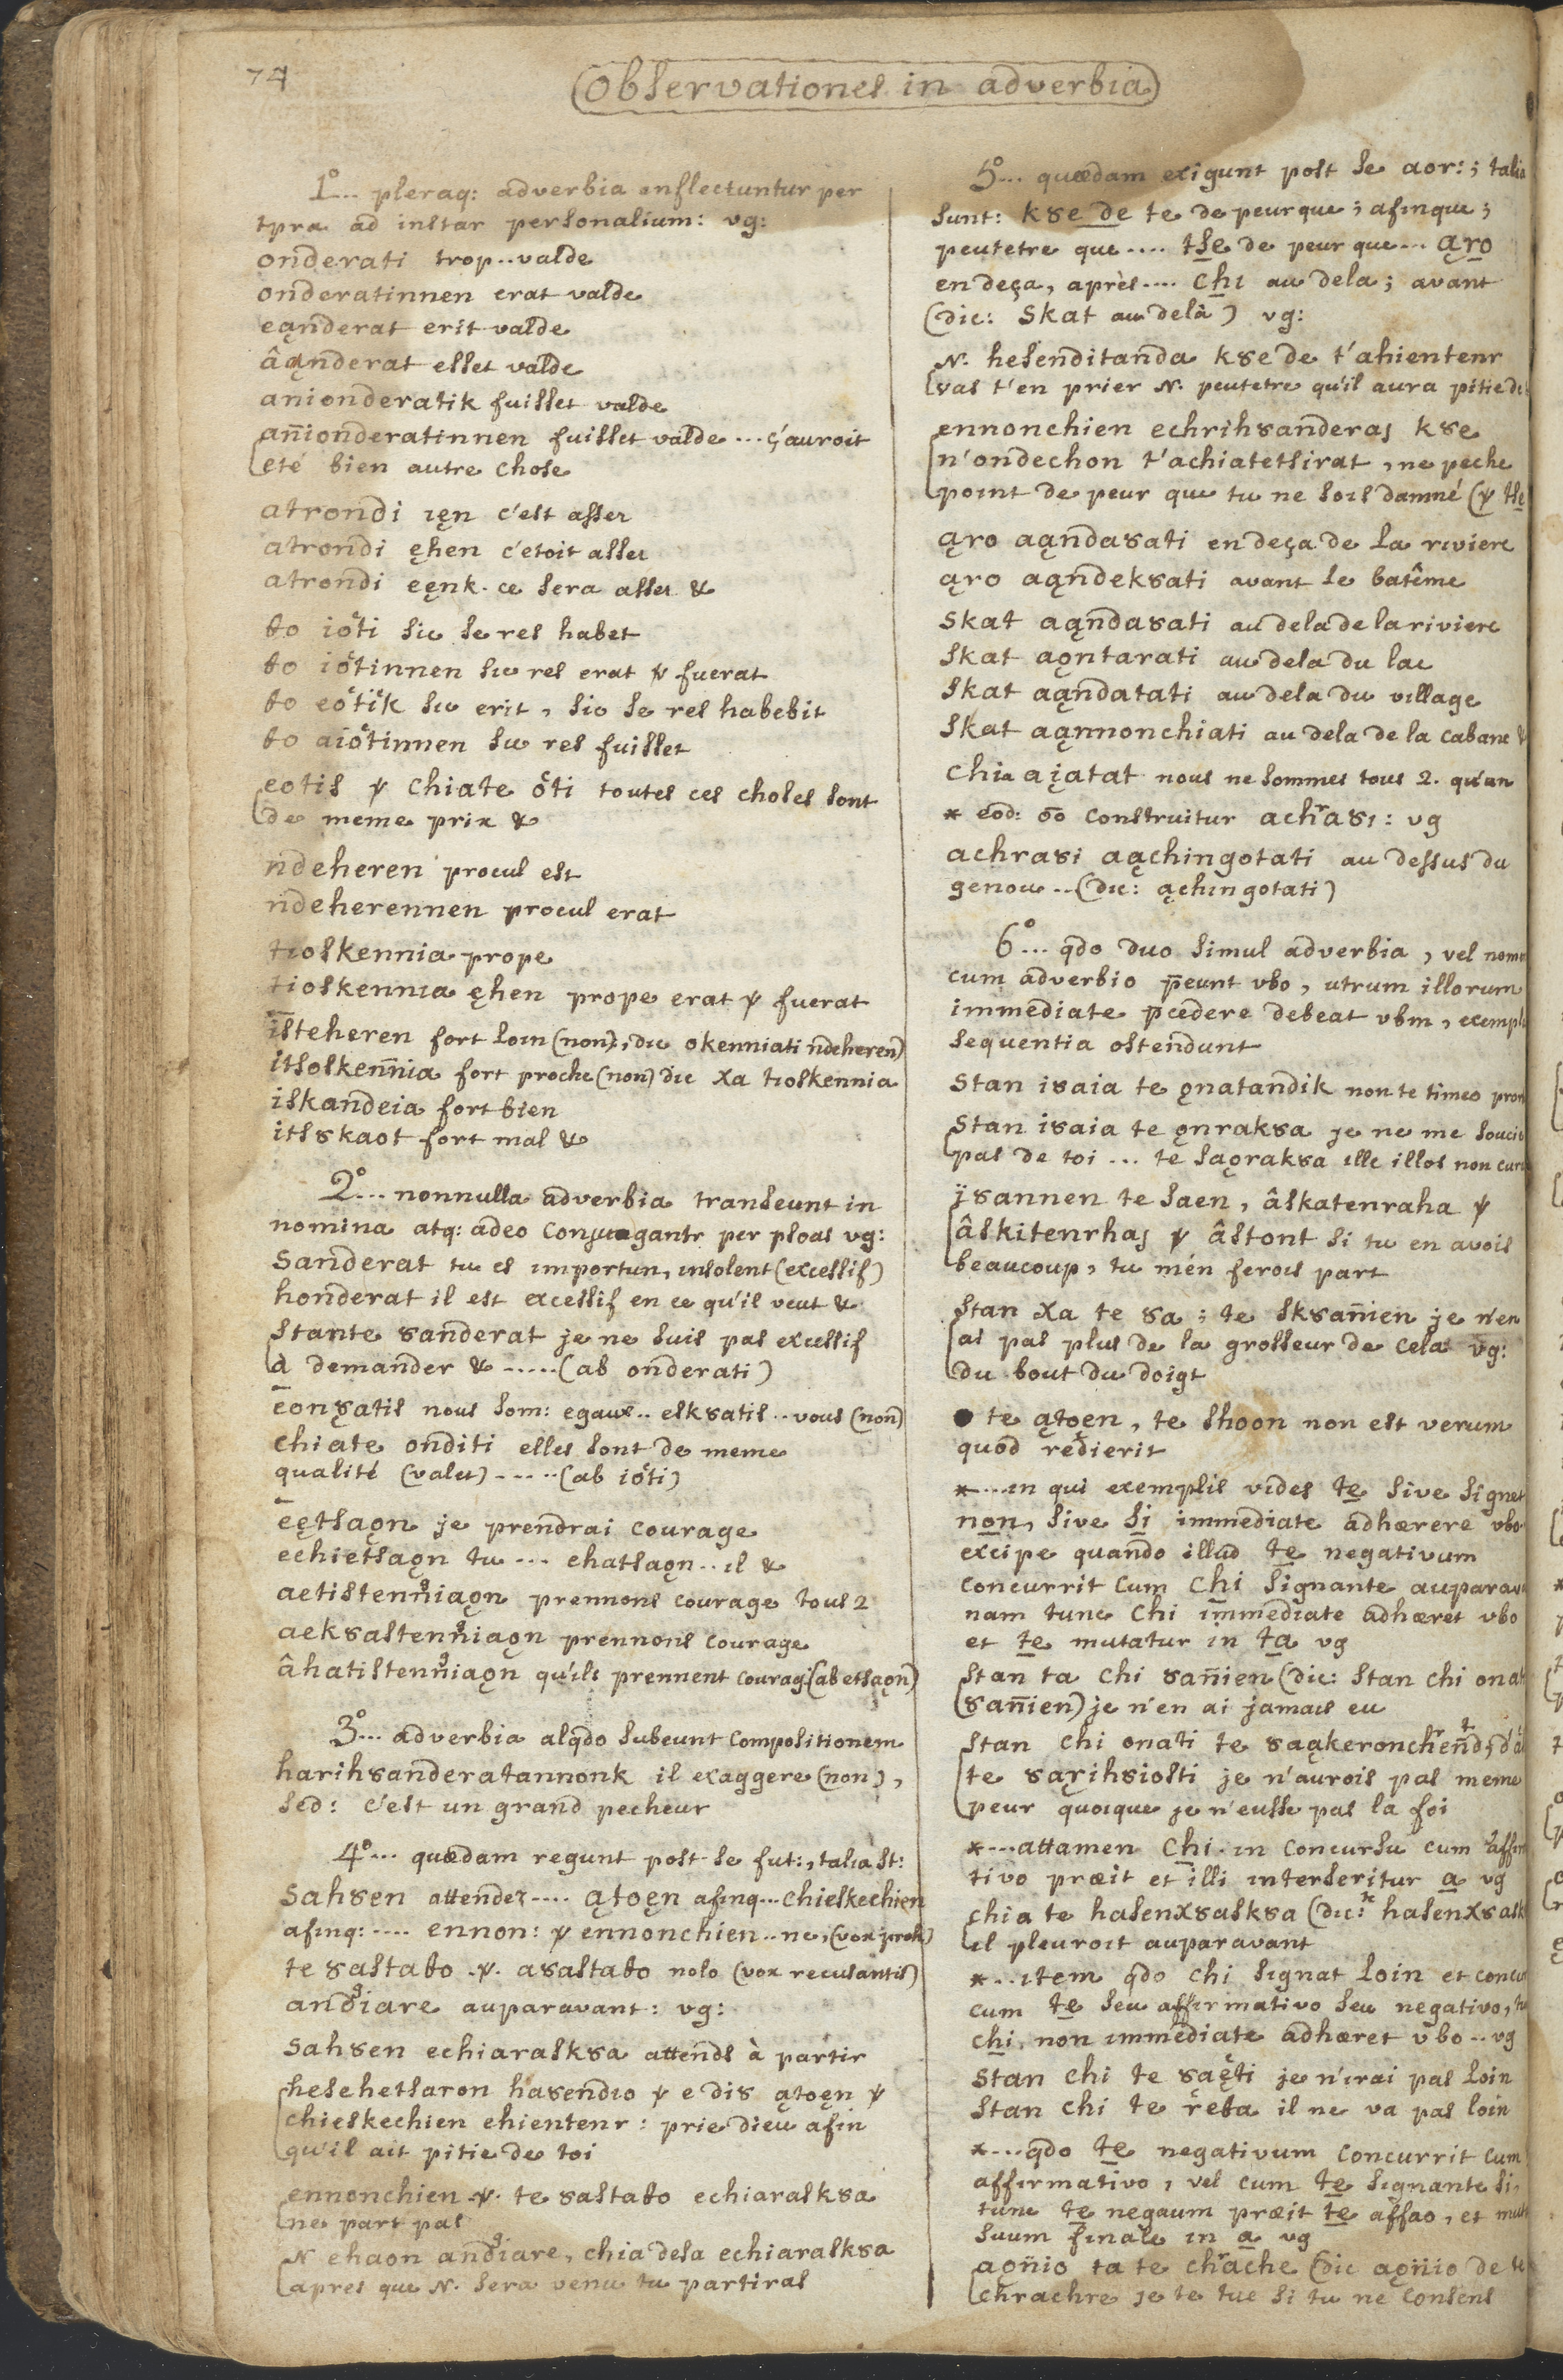 74
Observationes in adverbia
1° ... pleraq: adverbia inflectuntur per
tpra ad instar personalium: vg:
onderati trop.. valde
onderatinnen erat valde
eąnderat erit valde
âąnderat esset valde
anionderatik fuisset valde
anionderatinnen fuisset valde ... ç'auroit
eté bien autre chose
atrondi ıęn c'est assez
atrondi ęhen c'etoit assez
atrondi eęnk. ce sera assez &
to ioti sic se res habet
to iotinnen sic res erat ψ fuerat
to eotik sic erit, sic se res habebit
to aiotinnen sic res fuisset
eotis ψ chiate oti toutes ces choses sont
de meme prix &
ndeheren procul est
ndeherennen procul erat
tioskennia prope
tioskennia ęhen prope erat ψ fuerat
isteheren fort loin (non), dic okenniati ndeheren)
itsoskennia fort proche (non) dic χa tioskennia
iskandeia fort bien
its8kaot fort mal &
2° ... nonnulla adverbia transeunt in
nomina atq: adeo conjugantr per psoas vg:
sanderat tu es importun, insolent (excessif)
honderat il est excessif en ce qu'il veut &
stante 8anderat je ne suis pas excessif
à demander & ..... (ab onderati)
eon8atis nous som: egaux .. esk8atis .. vous (non)
chiate onditi elles sont de meme
qualité (valet) ..... (ab ioti)
eętsaǫn je prendrai courage
echietsaǫn tu ... ehatsaǫn .. il &
aetistenniaǫn prennons courage tous 2
aek8astenniaǫn prennons courage
âhatistenniaǫn qu'ils prennent courag: (ab etsaǫn)
3° ... adverbia alqdo subeunt compositionem
harih8anderatannonk il exaggere (non),
sed: c'est un grand pecheur
4° ... quædam regunt post se fut:, talia st:
sah8en attendez .... ątoęn afinq ... chieskechien
afinq: .... ennon: ψ ennonchien .. ne,
te 8astato .ψ. a8astato nolo (vox recusantis)
andiare auparavant: vg:
sah8en echiarask8a attends à partir
hesehetsaron ha8endio ψ e dis ątoęn ψ
chieskechien ehientenr: prie dieu afin
qu'il ait pitie de toi
ennonchien .ψ. te 8astato echiarask8a
ne part pas
N ehaon andiare, chia desa echiarask8a
apres que N. sera venu tu partiras
5° ... quædam exigunt post se aor:; talia
sunt: k8e de te de peur que; afinque;
peutetre que .... tse de peur que ... ąro
en deça, après .... chi au dela; avant
(dic: skat au delà) vg:
N. hesenditanda k8e de t'ahientenr
vas t'en prier N. peutetre qu'il aura pitie de
ennonchien echrih8anderaj k8e
n'ondechon t'achiatetsirat, ne peche
point de peur que tu ne sois damné (ψ tse
ąro aąnda8ati en deça de la riviere
ąro aąndek8ati avant le batême
skat aąnda8ati au dela de la riviere
skat aǫntarati au dela du lac
skat aąndatati au dela du village
skat aąnnonchiati au dela de la cabane &
chia aįatat nous ne sommes tous 2. qu'un
* eod: oo construitur achra8i: vg
achra8i aąchingotati au dessus du
genou .. (dic: ąchingotati)
6° ... qdo duo simul adverbia, vel nomen
cum adverbio peunt vbo, utrum illorum
immediate pcedere debeat vbm, exempla
sequentia ostendunt
stan i8aia te ǫnatandik non te timeo
stan i8aia te ǫnrak8a je ne me soucie
pas de toi ... te saǫrak8a ille illos non
ï8annen te saen, âskatenraha ψ
âskitenrhaj ψ âstont si tu en avois
beaucoup, tu m'en ferois part
stan χa te 8a; te sk8anien je n'en
ai pas plus de la grosseur de cela vg:
du bout du doigt
te ątoęn, te shoon non est verum
quod redierit
* ... in qui exemplis vides te sive signet
non, sive si immediate adhærere vbo
excipe quando illud te negativum
concurrit cum chi signante auparavt
nam tunc chi immediate adhæret vbo
et te mutatur in ta vg
stan ta chi 8anien (dic: stan chi onati
(8anien) je n'en ai jamais eu
stan chi onati te 8aąkeronchend,
te 8ąrih8iosti je n'aurois pas meme
peur quoique je n'eusse pas la foi
* ... attamen chi in concursu cum
tivo præit et illi interseritur a vg
chia te hasenχ8ask8a (dic: hasenχ8ask
il pleuroit auparavant
* ... item qdo chi signat loin et
cum te seu affirmativo seu negativo,
chi non immediate adhæret vbo .. vg
stan chi te 8aęti je n'irai pas loin
stan chi te reta il ne va pas loin
* .... qdo te negativum concurrit cum
affirmativo, vel cum te signante si,
tunc te negaum præit te affao, et
suum finale in a vg
aǫnio ta te chrache (dic aǫnio de te
chrachre je te tue si tu ne consens